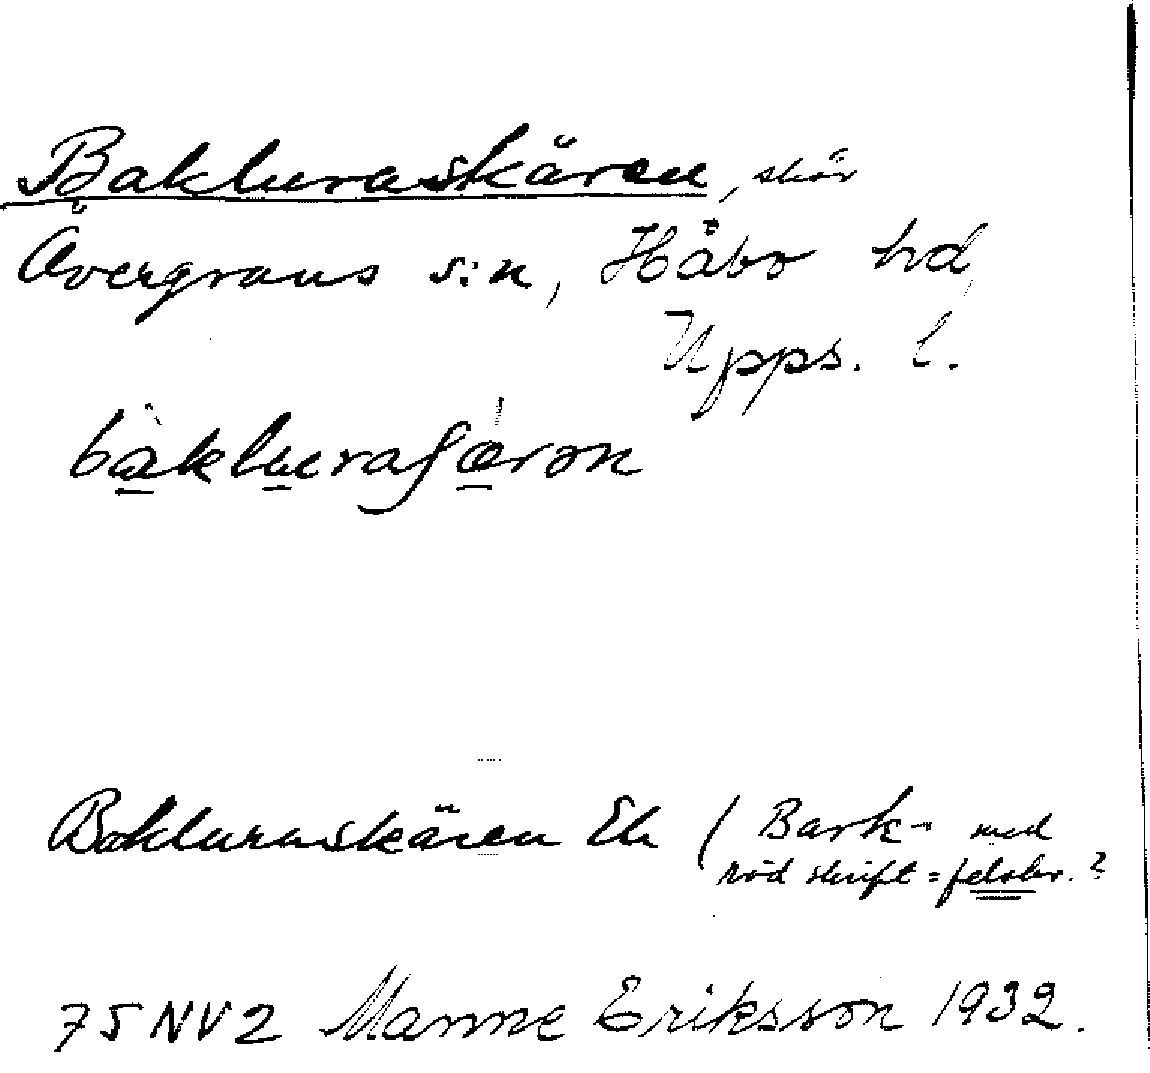 Bakluraskären, skär
Övergrans s:n, Håbo hd,
Upps. l.
bakluraʃærən
Bakluraskären Ek (Bark- med
röd skrift = felskr.?
75NV2 Manne Eriksson 1932.